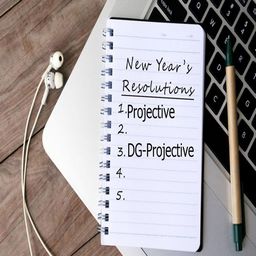 New Year's
Resolutions
1. Projective
2.
3. DG-Projective
4.
5.